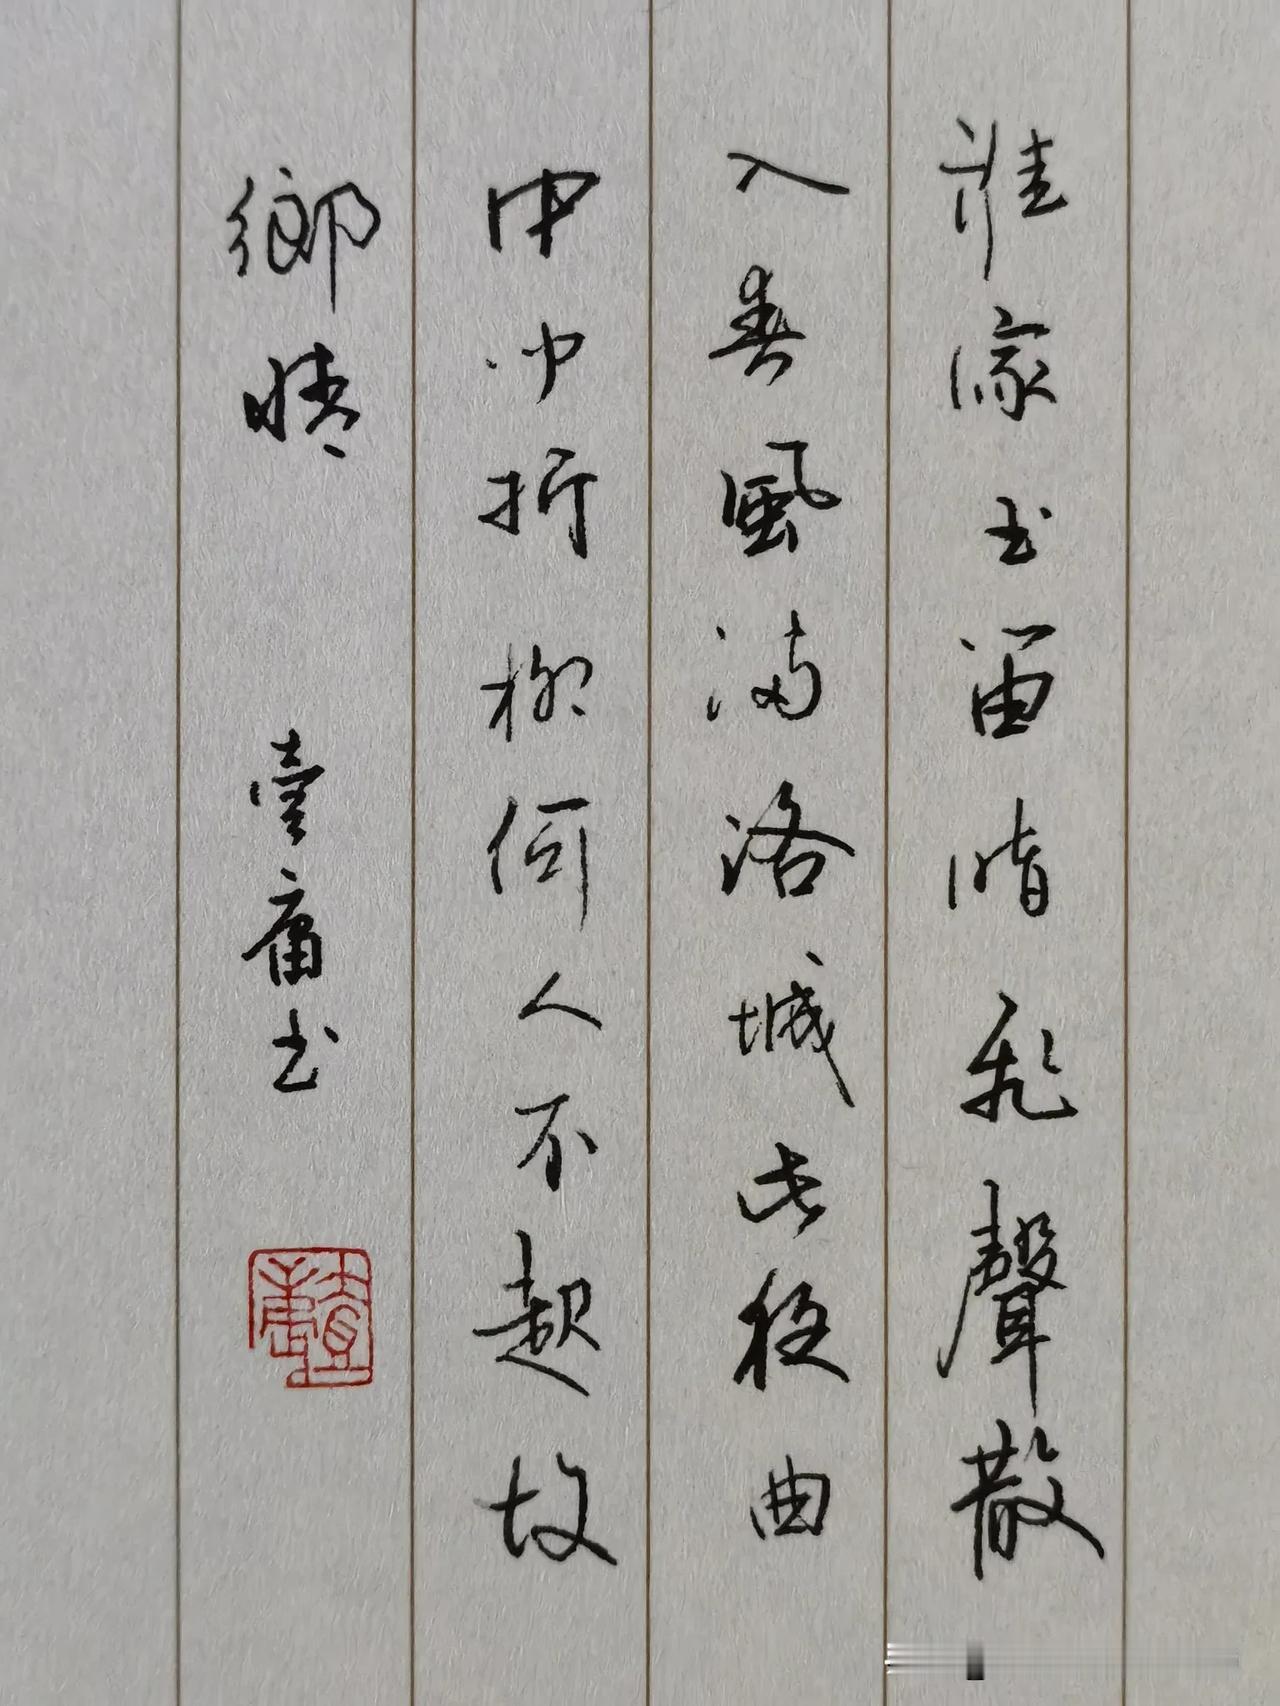 誰家玉笛暗飛聲散
入春風滿洛城此夜曲
中闻折柳何人不起故
鄉情 壹庸书